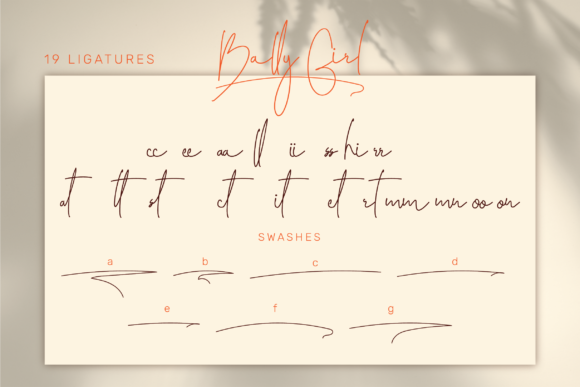 Bally Girl
19 LIGATURES
cc ee aa ll ii ss hi rr
at tt st ct it et rt mm mn oo on
SWASHES
a b c d
e f g